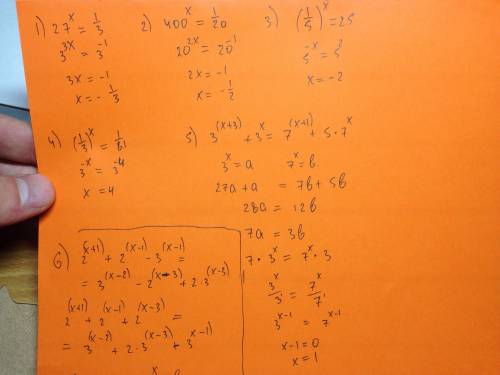 1) 27^x = 1/3
3^3x = 3^-1
3x = -1
x = - 1/3
2) 400^x = 1/20
20^2x = 20^-1
2x = -1
x = - 1/2
3) (1/5)^x = 25
5^-x = 5^2
x = -2
4) (1/3)^x = 1/81
3^-x = 3^-4
x = 4
5) 3^(x+3) + 3^x = 7^(x+1) + 5·7^x
3^x = a 7^x = b
27a + a = 7b + 5b
28a = 12b
7a = 3b
7·3^x = 7^x·3
3^x/3 = 7^x/7
3^x-1 = 7^x-1
x-1 = 0
x = 1
6) 2^(x+1) + 2^(x-1) - 3^(x-1) =
= 3^(x-2) - 2^(x-3) + 2·3^(x-3)
2^(x+1) + 2^(x-1) + 2^(x-3) =
= 3^(x-2) + 2·3^(x-3) + 3^(x-1)